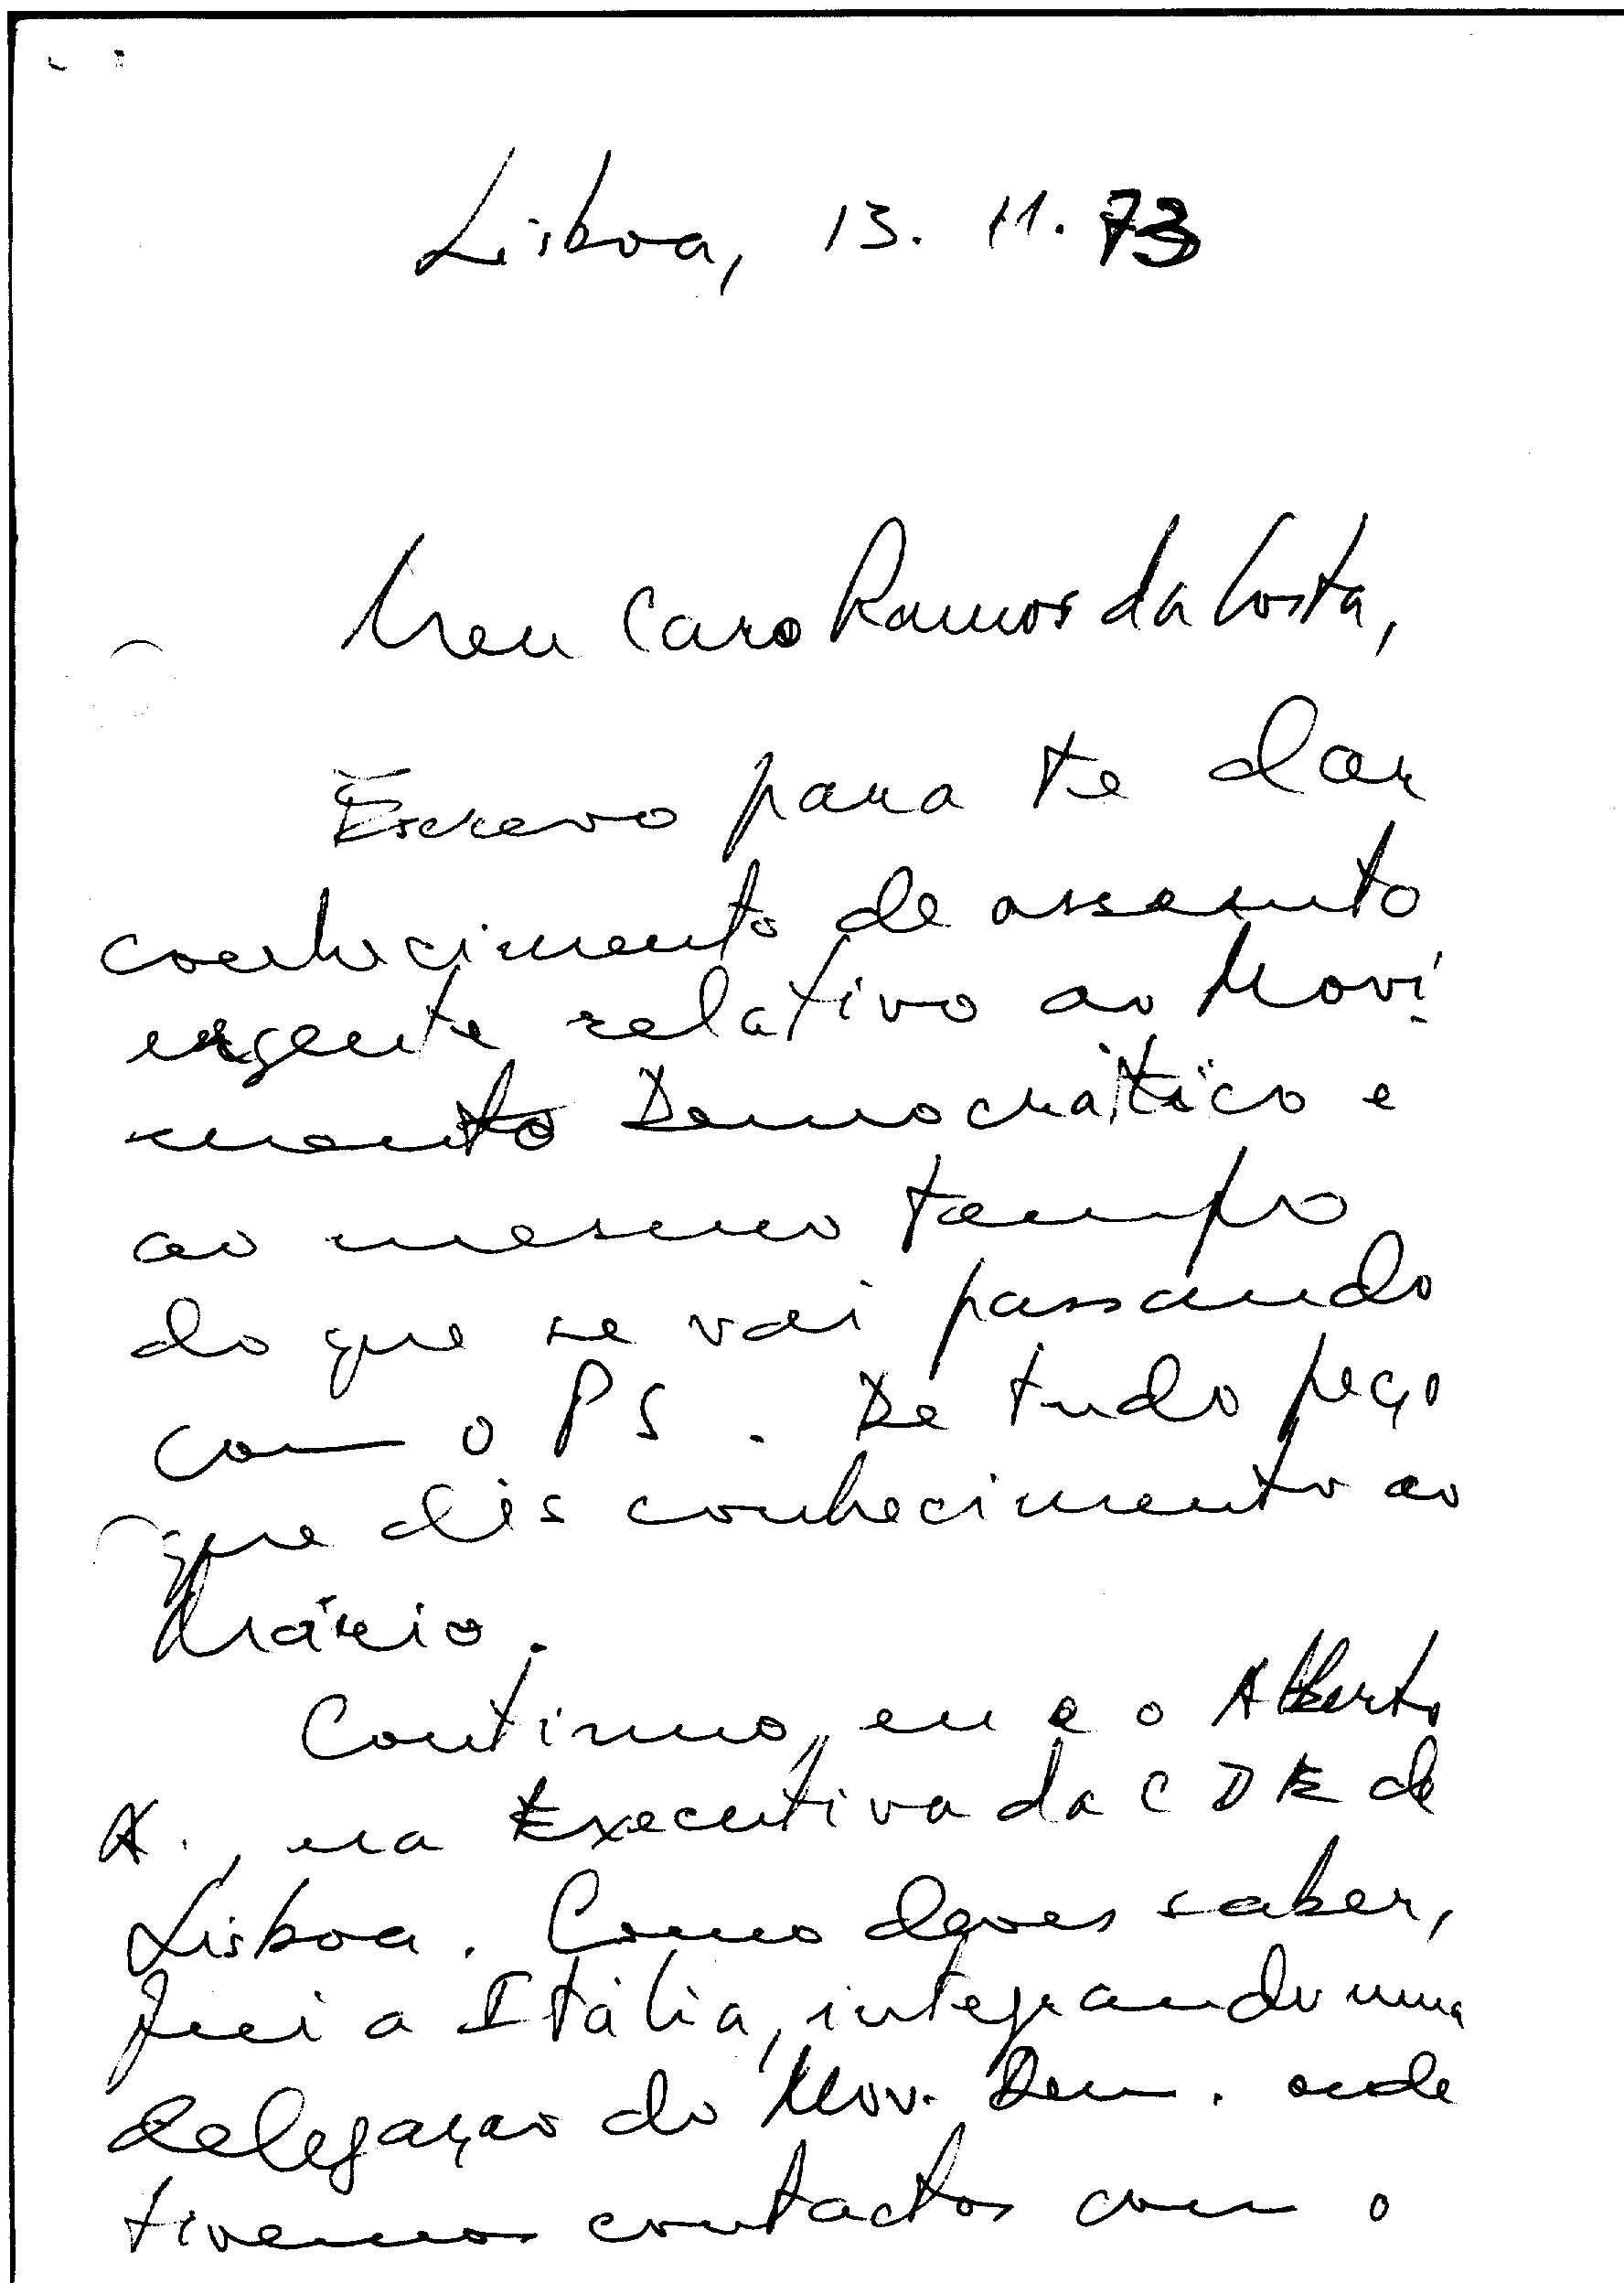 Lisboa, 13.11.73
Meu Caro Ramos da Costa,
Escrevo para te dar
conhecimento de assunto
urgente relativo ao Movi-
mento Democrático e
ao mesmo tempo
do que se vai passando
com o PS. De tudo peço
que dês conhecimento ao
Mário.
Continuo, eu e o Alberto
A., na Executiva da CDE de
Lisboa. Como deves saber,
fui a Itália, integrando uma
delegação do Mov. Dem. onde
tivemos contactos com o